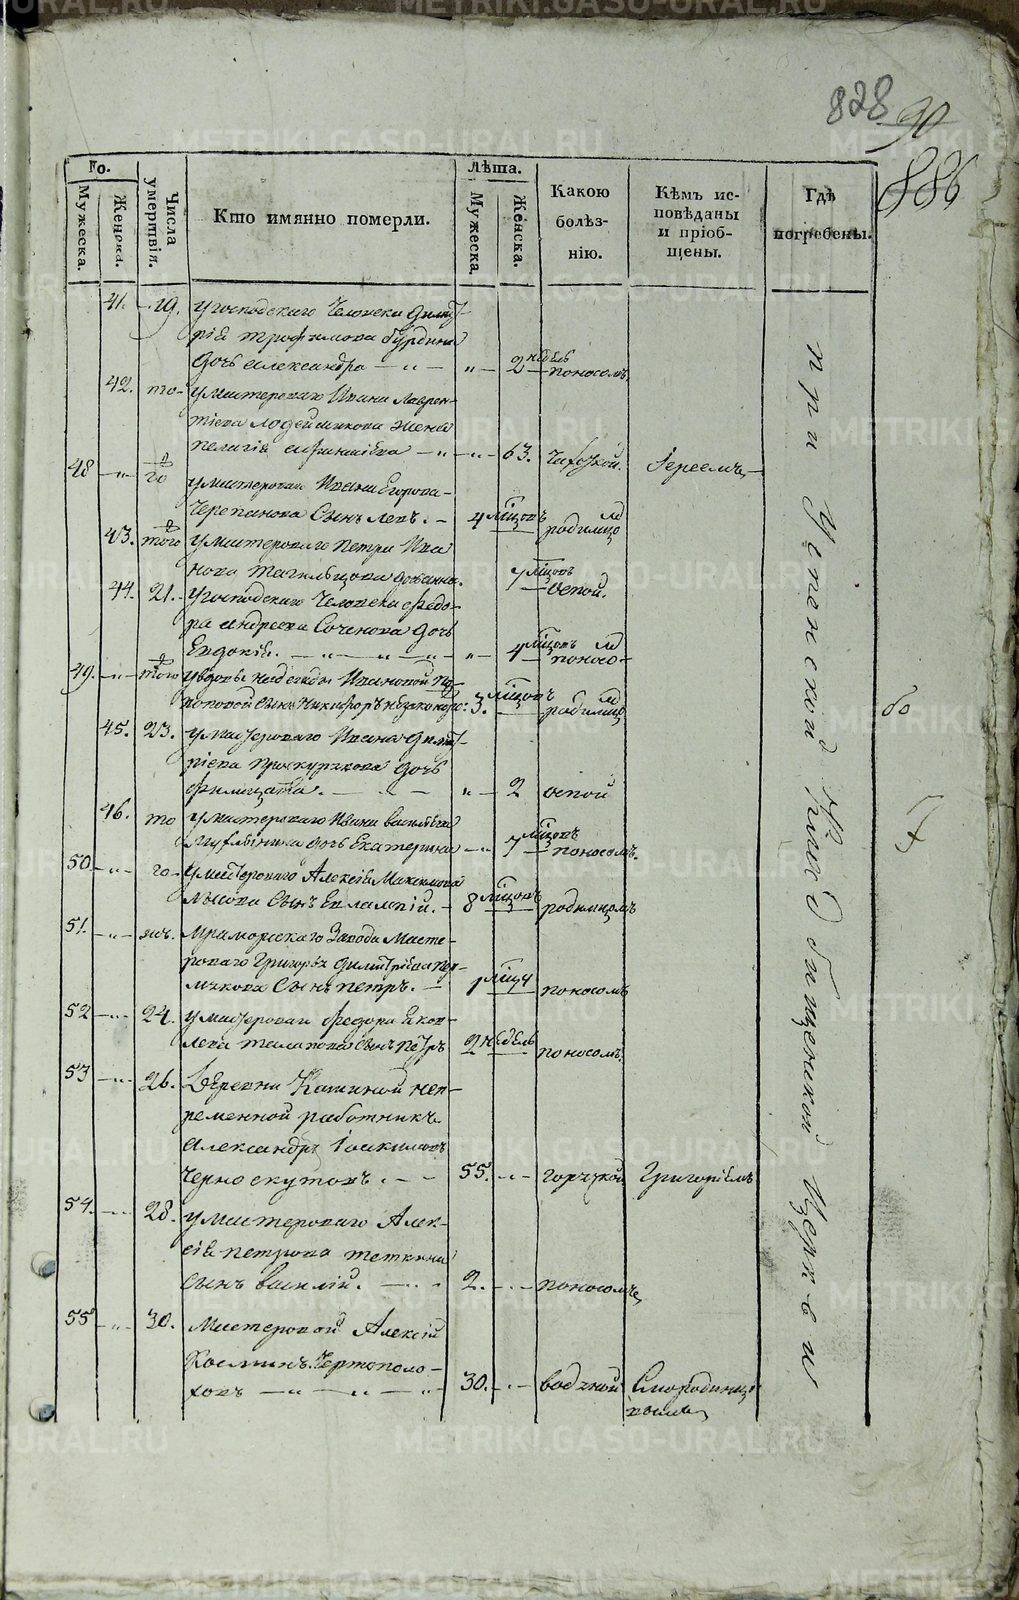 828
90
886
Го.
Лѣта.
Мужеска.
Женска.
Числа умертвія.
Кто имянно померли.
Мужеска.
Женска.
Какою болѣз-
нію.
Кѣмъ ис-
повѣданы
и пріоб-
щены.
Гдѣ
погребены.
41. 19. у господскаго человека Димит-
рія трофимова бурдина
дочь александра — „ — „ — 2 недель поносомъ
42. то у мастероваго Ивана лаврен-
тіева лодейщикова жена
пелагія — „ — „ — 63. чахоткой. Іереемъ
48 — „ — 20 у мастероваго Ивана Егорова
Черепанова Сынъ левъ. — 4 мѣсцовъ родимцомъ
43. того у мастероваго петра Ива
нова тагильцова дочь анна. 7 мѣсцовъ оспой.
44. 21. у господскаго Человека федо-
ра андреева Соченова дочь
Евдокія. — „ — „ — „ — 4 мѣсцовъ поносо-
49. — „ — того у вдовы надежды Ивановой по-
повой сынъ Никифоръ незаконоро: 3. мѣсцовъ родимцо
45. 23. у мастероваго Ивана Димит-
ріева проскурякова дочь
филицата. — „ — 2 оспой
46. то у мастероваго Ивана васильева
дочь Екатерина — „ — 7 мѣсцовъ поносомъ
50 — „ — то у мастероваго Алексія Максимова
лысова сынъ Евлампій. — 8 мѣсцовъ родимцомъ
51. — „ — Мраморскаго Завода Масте-
роваго Григорья Димитріева пер-
мякова Сынъ петръ. — 1 мѣсц поносомъ
52 — „ — 24. у мастероваго федора Яков-
лева талапова сынъ петръ 2 недель поносомъ.
53 — „ — 26. Деревни Кашиной неп-
ременной работникъ
александръ Іоакимовъ
Черноскутовъ. — 55. — „ — горячкой Григоріемъ
54. — „ — 28. у мастероваго Алек-
сія петрова теткина
сынъ василій. — 2. — „ — поносомъ
55 — „ — 30. Мастеровой Алексій
Косминъ Чертополо-
ховъ — „ — „ — „ 30. — „ — водяной Смородинц-
кимъ
при Успенской Кладбищенской Церкви
бо